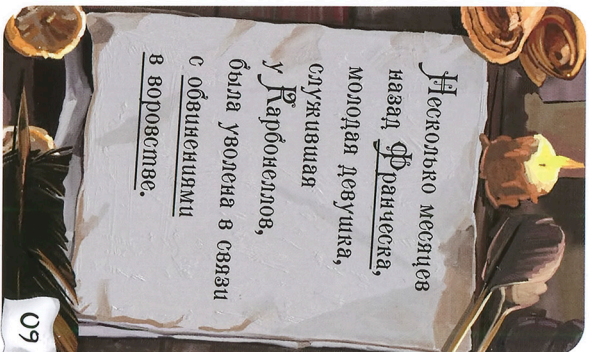 Несколько месяцев
назад Франческа,
молодая девушка,
служившая
у Карбонеллов,
была уволена в связи
с обвинениями
в воровстве.
09